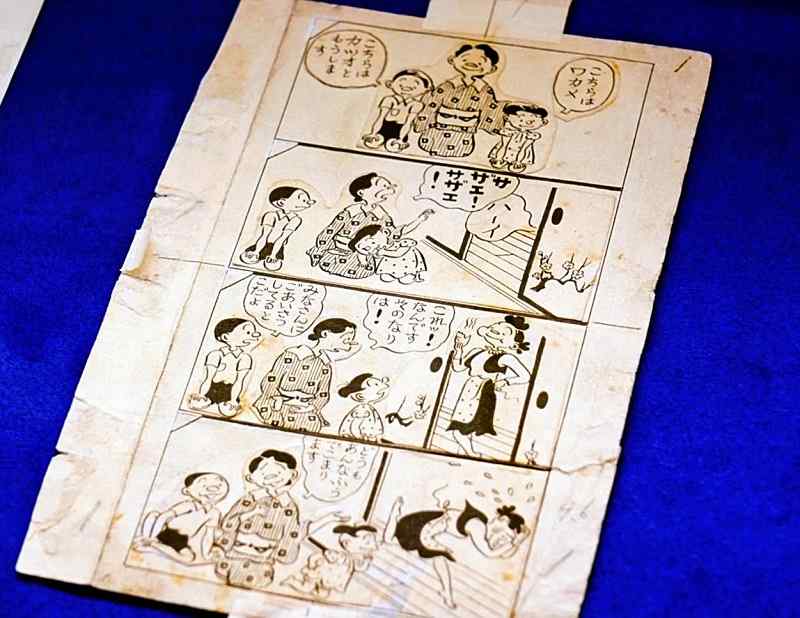 こちらは
ワカメ
こちらは
カツオと
もうしま
す
サザエ！
サザエ
！
ハーイ
これッ！
なんです
そのなり
は！
みなさんに
ごあいさつ
してると
こだよ
どうも
あんなふう
でこまり
ます